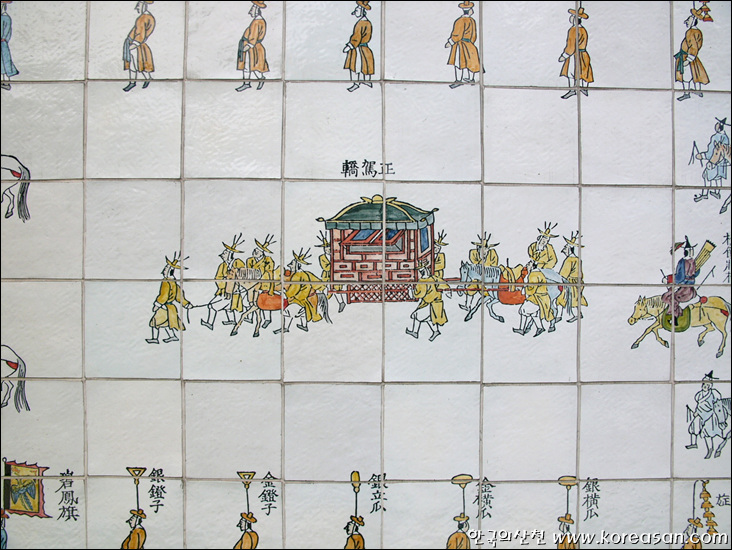 正駕轎
銀橫瓜
金橫瓜
銀立瓜
金鐙子
銀鐙子
碧鳳旗
한국의산천 www.koreasan.com